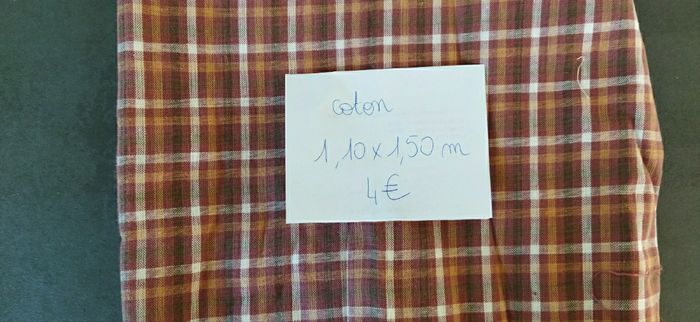 coton
1,10 x 1,50 m
4€